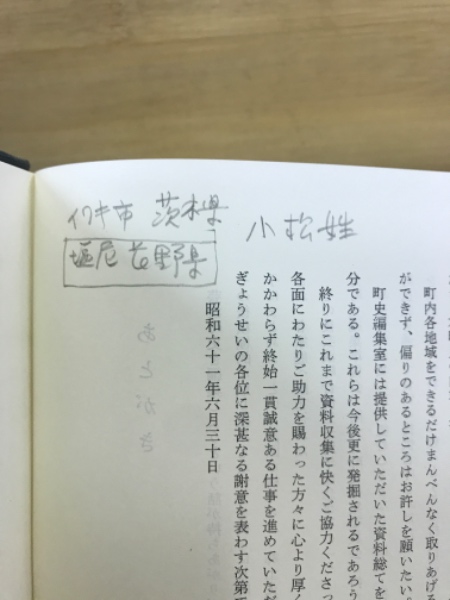 イワキ市 茨木県
塩尻 長野県
小松姓
町内各地域をできるだけまんべんなく取りあげる
ができず、偏りのあるところはお許しを願いたい。
町史編集室には提供していただいた資料総てを
分である。これらは今後更に発掘されるであろう
終りにこれまで資料収集に快くご協力くださっ
各面にわたりご助力を賜わった方々に心より厚く
かかわらず終始一貫誠意ある仕事を進めていただ
ぎょうせいの各位に深甚なる謝意を表わす次第で
昭和六十一年六月三十日
あとがき